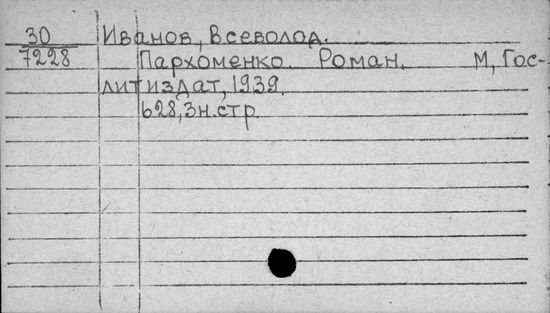 30 Иванов, Всеволод.
7228 Пархоменко. Роман. М, Гос-
литиздат, 1939.
628, 3 н. стр.